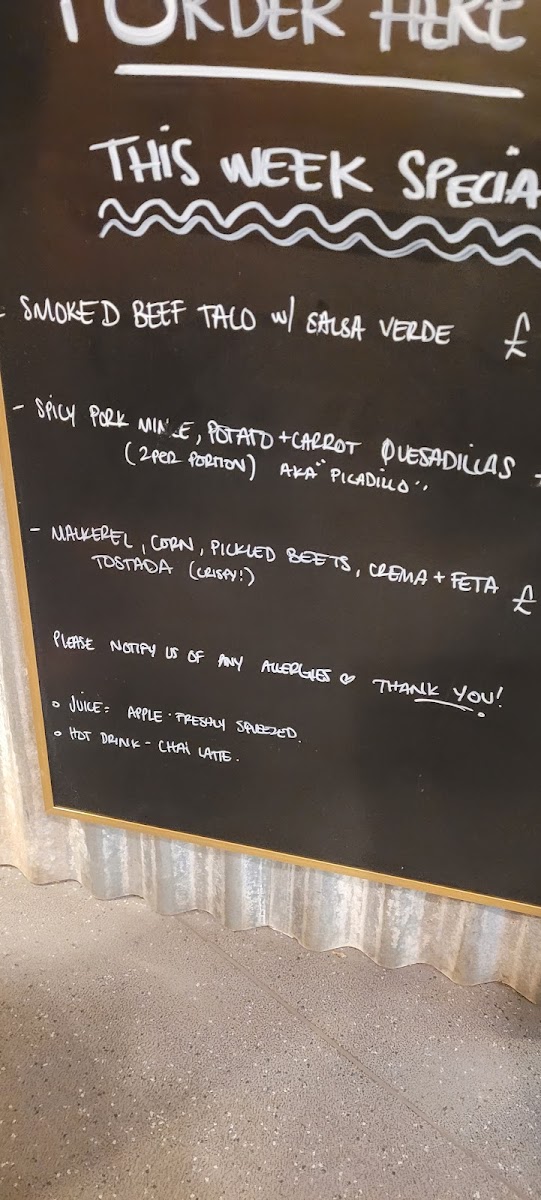 ORDER HERE
THIS WEEK SPECIA
- SMOKED BEEF TACO W/ SALSA VERDE £
- SPICY PORK MINCE, POTATO + CARROT QUESADILLAS
(2 PER PORTION) AKA "PICADILLO"
- MACKEREL, CORN, PICKLED BEETS, CREMA + FETA £
TOSTADA (CRISPY!)
PLEASE NOTIFY US OF ANY ALLERGIES ♡ THANK YOU!
• JUICE: APPLE · FRESHLY SQUEEZED.
• HOT DRINK - CHAI LATTE.